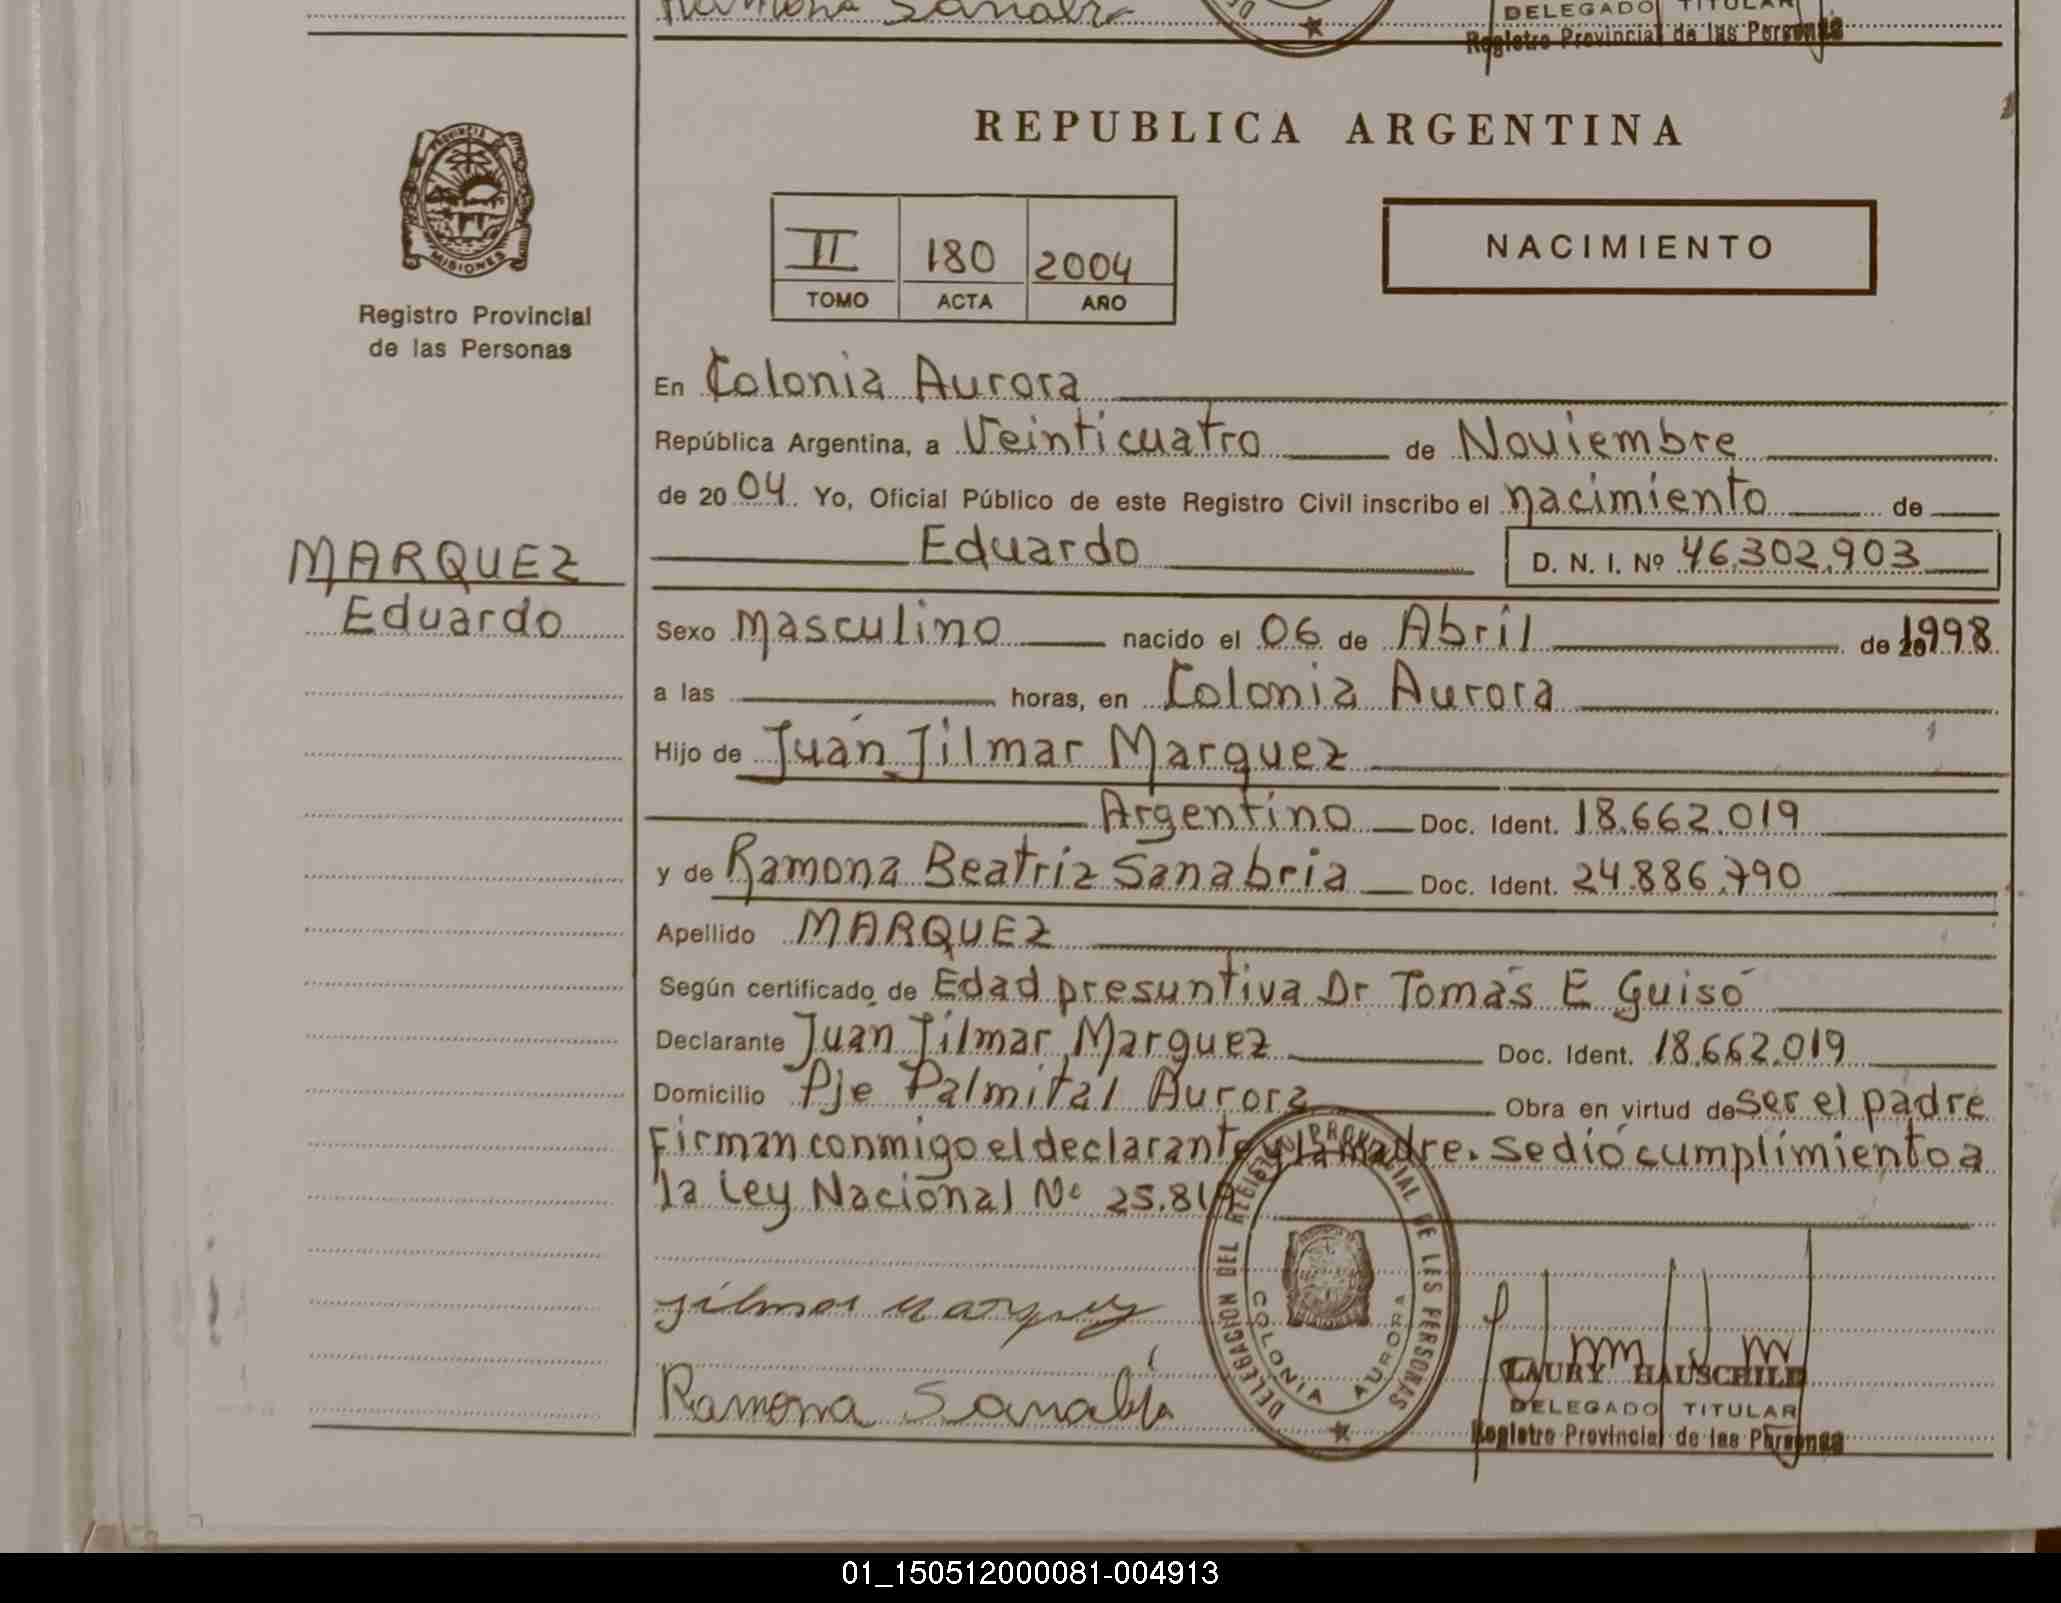 Ramona Sanabr
DELEGADO TITULAR
Registro Provincial de las Personas
PROVINCIA
MISIONES
Registro Provincial
de las Personas
REPUBLICA ARGENTINA
II 180 2004
TOMO ACTA AÑO
NACIMIENTO
En Colonia Aurora
República Argentina, a Veinticuatro de Noviembre
de 2004. Yo, Oficial Público de este Registro Civil inscribo el nacimiento de
MARQUEZ
Eduardo
Eduardo D. N. I. Nº 46.302.903
Sexo Masculino nacido el 06 de Abril de 1998
a las horas, en Colonia Aurora
Hijo de Juan Jilmar Marquez
Argentino Doc. Ident. 18.662.019
y de Ramona Beatriz Sanabria Doc. Ident. 24.886.790
Apellido MARQUEZ
Según certificado de Edad presuntiva Dr Tomás E Guisó
Declarante Juan Jilmar Marquez Doc. Ident. 18.662.019
Domicilio Pje Palmital Aurora Obra en virtud de ser el padre
Firman conmigo el declarante y la madre. Se dió cumplimiento a
la Ley Nacional Nº 25.819
Jilmar Marquez
Ramona Sanabria
DELEGACION DEL REGISTRO PROVINCIAL DE LES PERSONAS
COLONIA AURORA
LAURY HAUSCHILD
DELEGADO TITULAR
Registro Provincial de las Personas
01_150512000081-004913